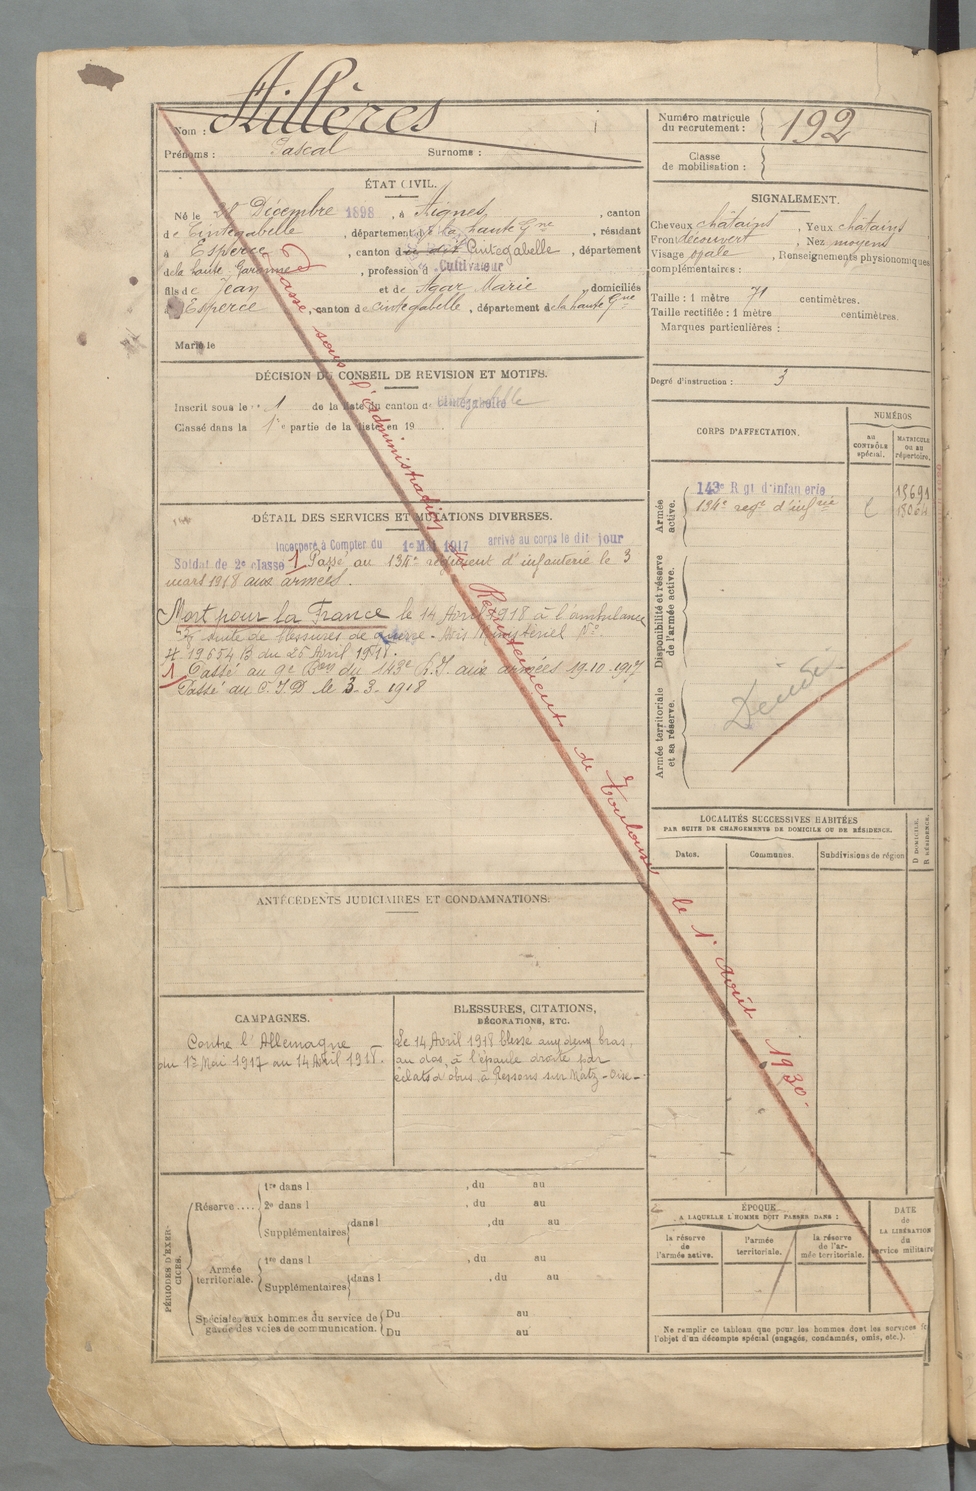 Nom : Aillères
Prénoms : Pascal Surnoms :
Numéro matricule
du recrutement : 192
Classe
de mobilisation :
ÉTAT CIVIL.
Né le Décembre 1898, à Aignes, canton
de Cintegabelle, département de la haute Gne, résidant
à Esperce, canton de Cintegabelle, département
de la haute Garonne, profession d Cultivateur
fils de Jean et de Agar Marie, domiciliés
à Esperce, canton de Cintegabelle, département de la haute Gne
Marié le
SIGNALEMENT.
Cheveux châtains, Yeux châtains
Front découvert, Nez moyens
Visage ovale, Renseignements physionomiques
complémentaires :
Taille : 1 mètre 71 centimètres.
Taille rectifiée : 1 mètre centimètres.
Marques particulières :
Degré d'instruction : 3
DÉCISION DU CONSEIL DE REVISION ET MOTIFS.
Inscrit sous le n° 1 de la liste du canton de Cintegabelle
Classé dans la 1re partie de la liste en 19
CORPS D'AFFECTATION.
NUMÉROS
au
CONTRÔLE
spécial.
MATRICULE
OU AU
répertoire.
Armée
active.
143e Rgt d'infanterie 13691
134e regt d'infrie 18064
Disponibilité et réserve
de l'armée active.
Armée territoriale
et sa réserve.
DÉTAIL DES SERVICES ET MUTATIONS DIVERSES.
Incorporé à Compter du 1e Mai 1917 arrivé au corps le dit jour
Soldat de 2e classe 1 Passé au 134e régiment d'infanterie le 3
mars 1918 aux armées.
Mort pour la France le 14 Avril 1918 à l'ambulance
suite de blessures de guerre - Avis Ministériel No
du 25 Avril 1918.
1 Passé au 9e Bon du 143e R.I. aux armées 19-10-1917
Passé au C.I.D le 3-3-1918
Passé sous l'administration du Recrutement de Toulouse le 1er Août 1930.
LOCALITÉS SUCCESSIVES HABITÉES
PAR SUITE DE CHANGEMENTS DE DOMICILE OU DE RÉSIDENCE.
Dates. Communes. Subdivisions de région
D. DOMICILE.
R. RÉSIDENCE.
ANTÉCÉDENTS JUDICIAIRES ET CONDAMNATIONS.
CAMPAGNES.
Contre l'Allemagne
du 1er Mai 1917 au 14 Avril 1918.
BLESSURES, CITATIONS,
DÉCORATIONS, ETC.
Le 14 Avril 1918 blessé aux deux bras,
au dos, à l'épaule droite par
éclats d'obus, à Ressons sur Matz - Oise -
PÉRIODES D'EXERCICES.
Réserve....
1re dans l , du au
2e dans l , du au
Supplémentaires dans l , du au
Armée
territoriale.
1re dans l , du au
Supplémentaires dans l , du au
Spéciales aux hommes du service de
garde des voies de communication.
Du au
Du au
ÉPOQUE
A LAQUELLE L'HOMME DOIT PASSER DANS :
la réserve
de
l'armée active.
l'armée
territoriale.
la réserve
de l'armée territoriale.
DATE
de
LA LIBÉRATION
du
service militaire
Ne remplir ce tableau que pour les hommes dont les services
l'objet d'un décompte spécial (engagés, condamnés, omis, etc.).